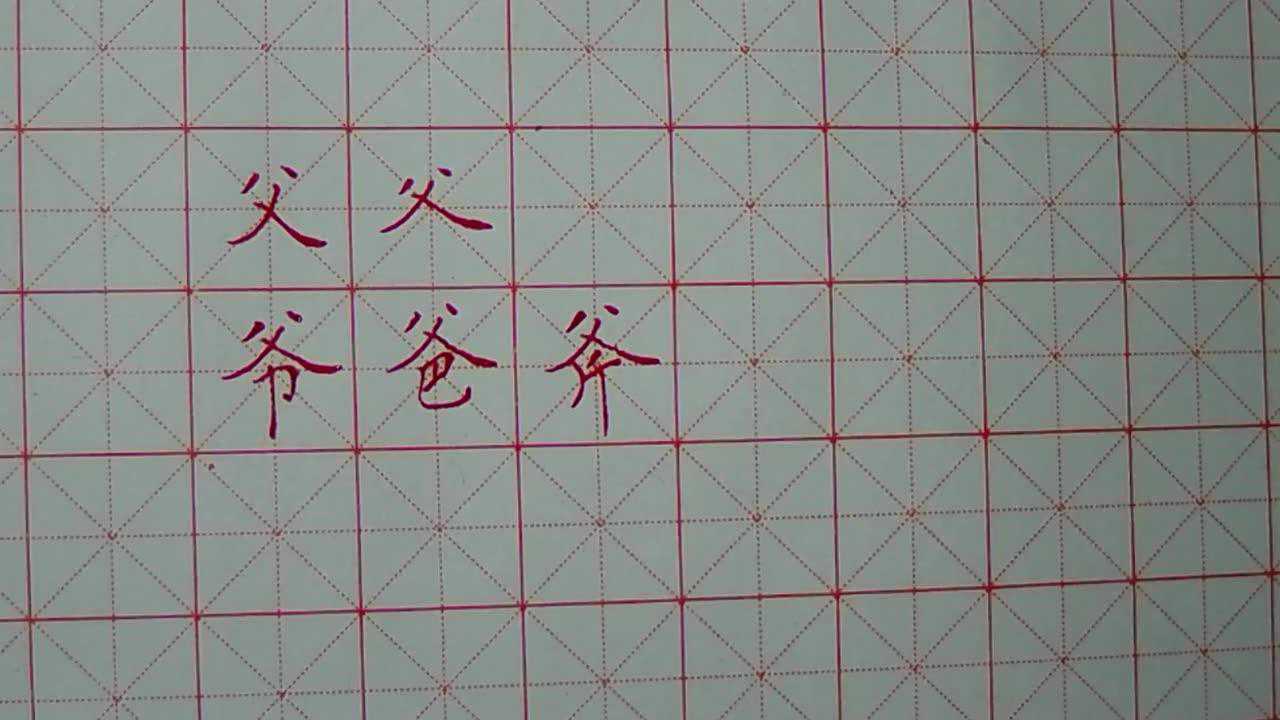 父父
爷爸斧